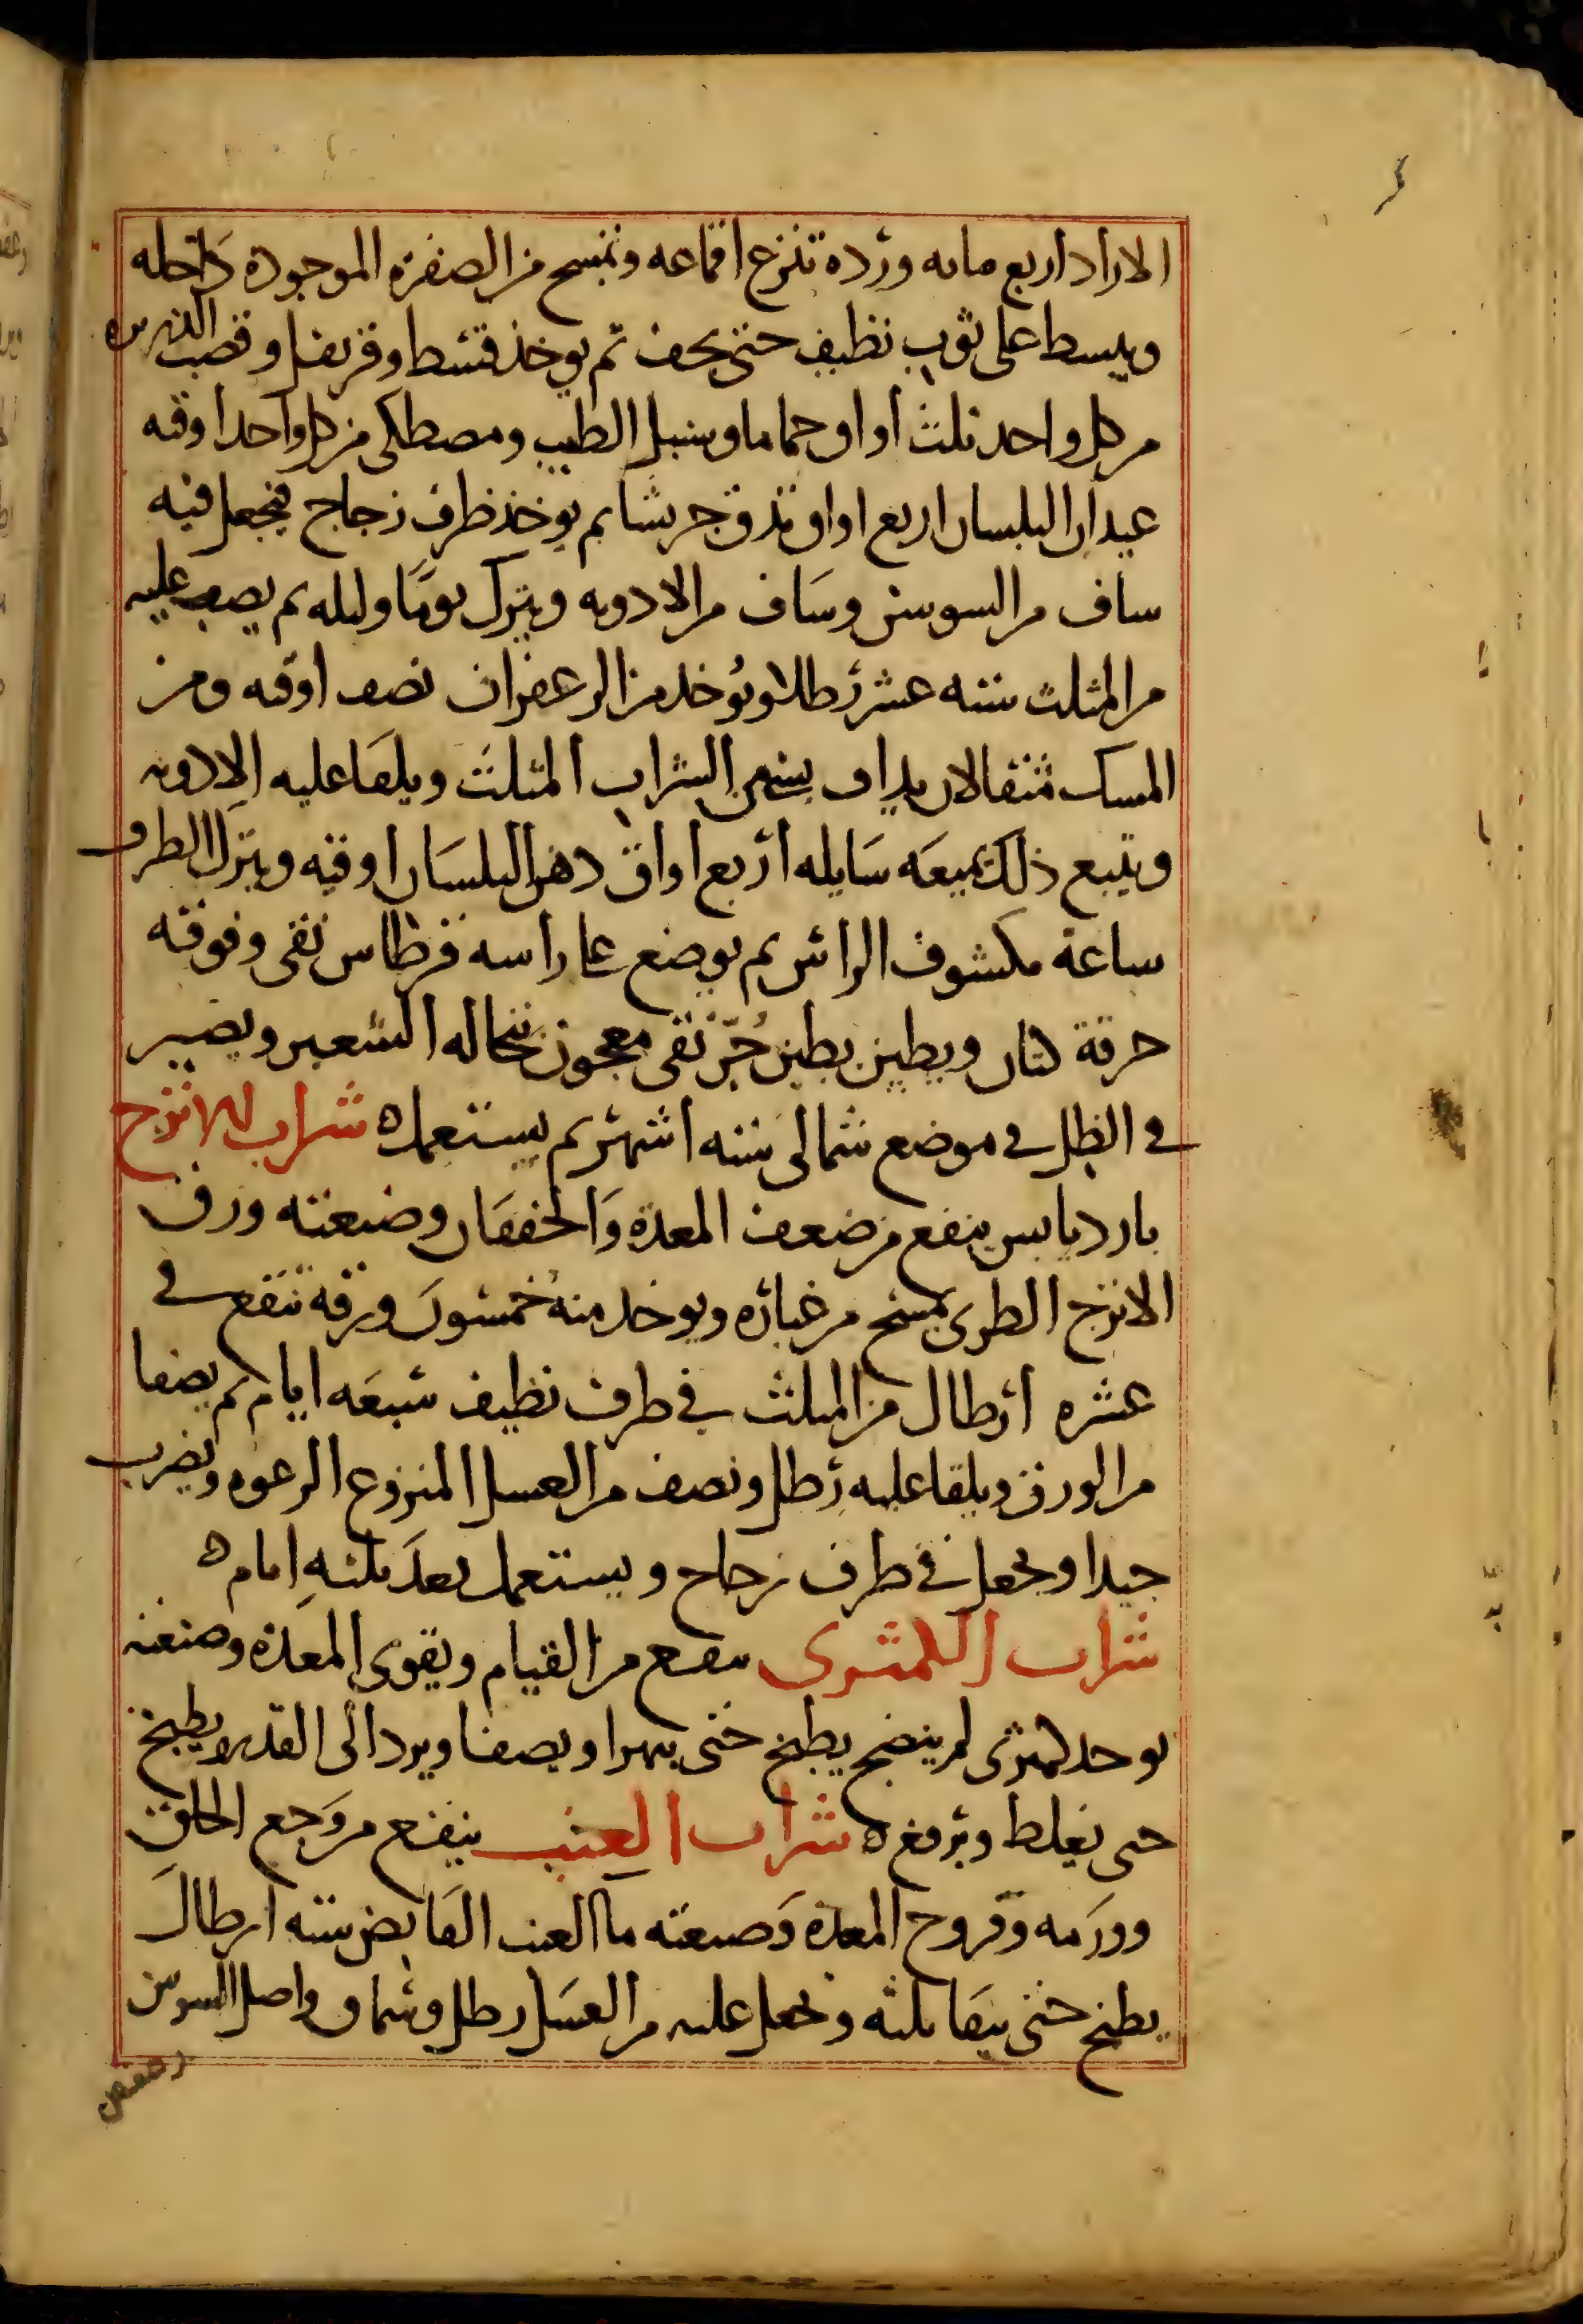 الازاد اربع مايه ورده تنزع اقماعه وتمسح من الصفرة الموجوده داخله
ويبسط على ثوب نظيف حتى يجف ثم يوخذ قسط وقرنفل وقصب الذريره
من كل واحد ثلث اواق وحماما وسنبل الطيب ومصطكى من كل واحد اوقيه
عيدان البلسان اربع اواق تدق جريشا ثم يوخذ ظرف زجاج فيجعل فيه
ساف من السوسن وساف من الادويه ويترك يوما وليله ثم يصب عليه
من المثلث سته عشر رطلا ويوخذ من الزعفران نصف اوقيه ومن
المسك مثقالان يداف بشى من الشراب المثلث ويلقا عليه الادويه
ويتبع ذلك بميعه سايله اربع اواق دهن البلسان اوقيه ويترك الظرف
ساعة مكشوف الراس ثم يوضع على راسه قرطاس نقى وفوقه
خرقة كتان ويطين بطين حر نقى معجون بنخاله الشعير ويصير
في الظل في موضع شمالى سته اشهر ثم يستعمل ه شراب الاترج
بارد يابس ينفع من ضعف المعدة والخفقان وصنعته ورق
الاترج الطرى يمسح من غباره ويوخذ منه خمسون ورقة تنقع في
عشره ارطال من المثلث في ظرف نظيف سبعه ايام ثم يصفا
من الورق ويلقا عليه رطل ونصف من العسل المنزوع الرغوه ويضرب
جيدا ويجعل في ظرف زجاج ويستعمل بعد ثلثه ايام ه
شراب الكمثرى ينفع من القيام ويقوى المعدة وصنعته
يوخذ كمثرى لم ينضج يطبخ حتى يتهرا ويصفا ويرد الى القدر ويطبخ
حتى يغلظ ويرفع ه شراب العنب ينفع من وجع الحلق
وورمه وقروح المعدة وصنعته ما العنب القابض سته ارطال
يطبخ حتى يبقا ثلثه ويجعل عليه من العسل رطل وسماق واصل السوسن